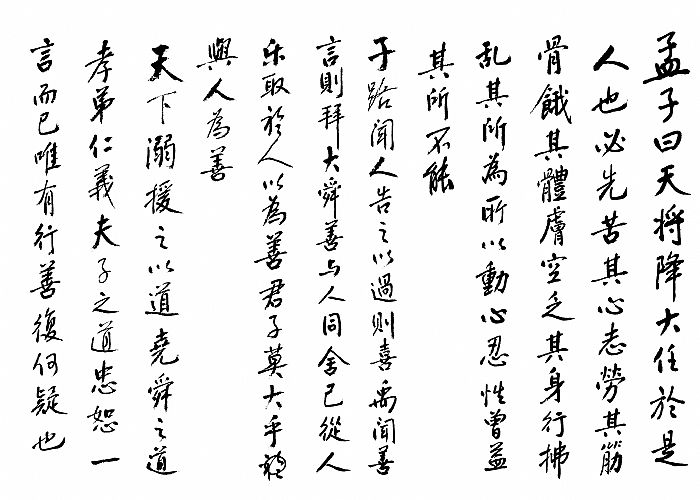 孟子曰天將降大任於是
人也必先苦其心志勞其筋
骨餓其體膚空乏其身行拂
乱其所為所以動心忍性曾益
其所不能
子路聞人告之以過則喜禹聞善
言則拜大舜善与人同舍己從人
乐取於人以為善君子莫大乎
與人為善
天下溺援之以道堯舜之道
孝弟仁義夫子之道忠恕一
言而已唯有行善復何疑也